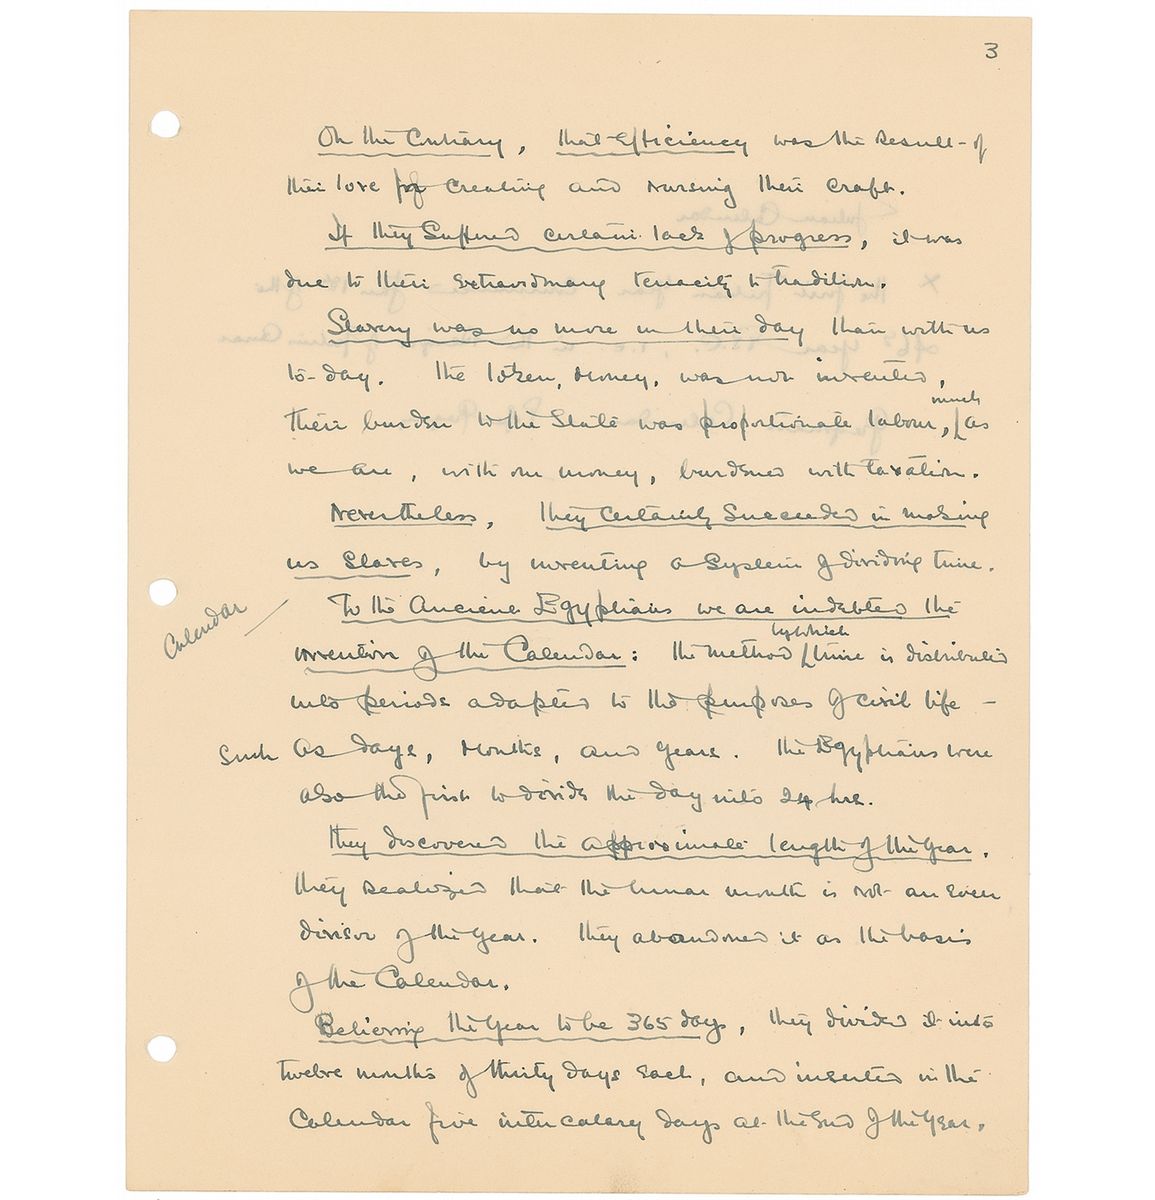 3
On the Contrary, that efficiency was the result of
their love for creating and nursing their craft.
If they suffered certain lack of progress, it was
due to their extraordinary tenacity to tradition.
Slavery was no more in their day than with us
to-day. The token, money, was not invented,
their burden to the State was proportionate labour, much as
we are, with our money, burdened with taxation.
Nevertheless, they certainly succeeded in making
us Slaves, by inventing a System of dividing time.
Calendar —
To the Ancient Egyptians we are indebted the
invention of the Calendar: the method by which time is distributed
into periods adapted to the purposes of civil life —
such as days, months, and years. The Egyptians were
also the first to divide the day into 24 hrs.
They discovered the approximate length of the year.
They realized that the lunar month is not an even
divisor of the year. They abandoned it as the basis
of the Calendar.
Believing the year to be 365 days, they divided it into
twelve months of thirty days each, and inserted in the
Calendar five intercalary days at the end of the year.